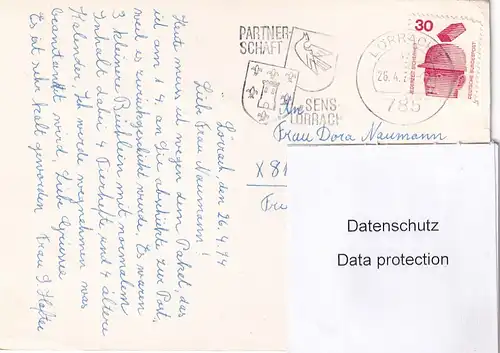 Lörrach, den 26.4.74
Liebe Frau Naumann!
Heute muss ich wegen dem Paket, das
ich am 1.4. an Sie abschickte zur Post,
weil es zurückgeschickt wurde. Es waren
3 kleinere Büchlein mit normalem
Inhalt dabei 4 Tierhefte und 4 ältere
Kalender. Ich werde wegnehmen was
beanstandet wird, Liebe Grüsse
Es ist sehr kalt geworden Frau J.
PARTNER-
SCHAFT
SENS-
LÖRRACH
LÖRRACH
26.4.
785
30
DEUTSCHE BUNDESPOST
An
Frau Dora Naumann
X 81
Datenschutz
Data protection